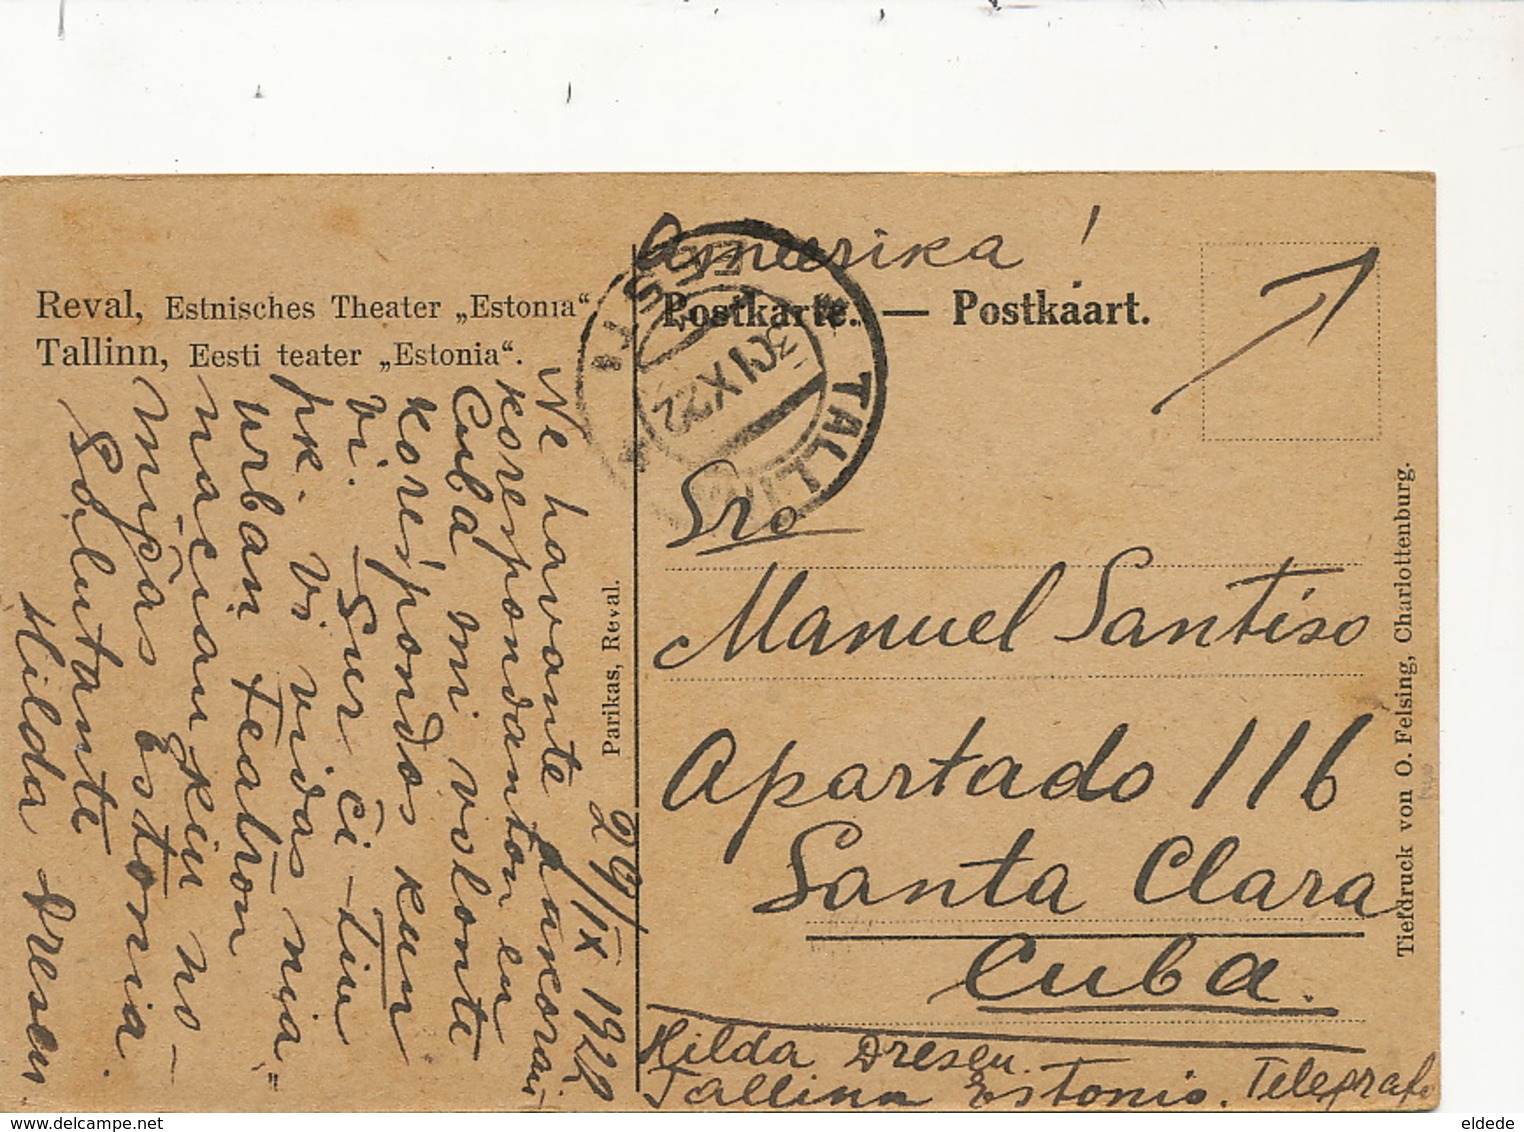 Reval, Estnisches Theater „Estonia“
Tallinn, Eesti teater „Estonia“.
29/IX 1922
Ne havante ankoraŭ
korespondanton en
Cuba mi volonte
korespondos kun
vi. Sur ĉi-tiu
pk. vi vidas nia
urban teatron
naciau kiu no-
miĝas Estonia.
Salutante
Hilda Dresen
Parikas, Reval.
Ameerika!
Postkarte. — Postkaart.
EESTI
TALLINN
30 IX 22
Sro
Manuel Santiso
Apartado 116
Santa Clara
Cuba.
Hilda Dresen.
Tallinn Estonio. Telegrafo
Tiefdruck von O. Felsing, Charlottenburg.
www.delcampe.net
eldede